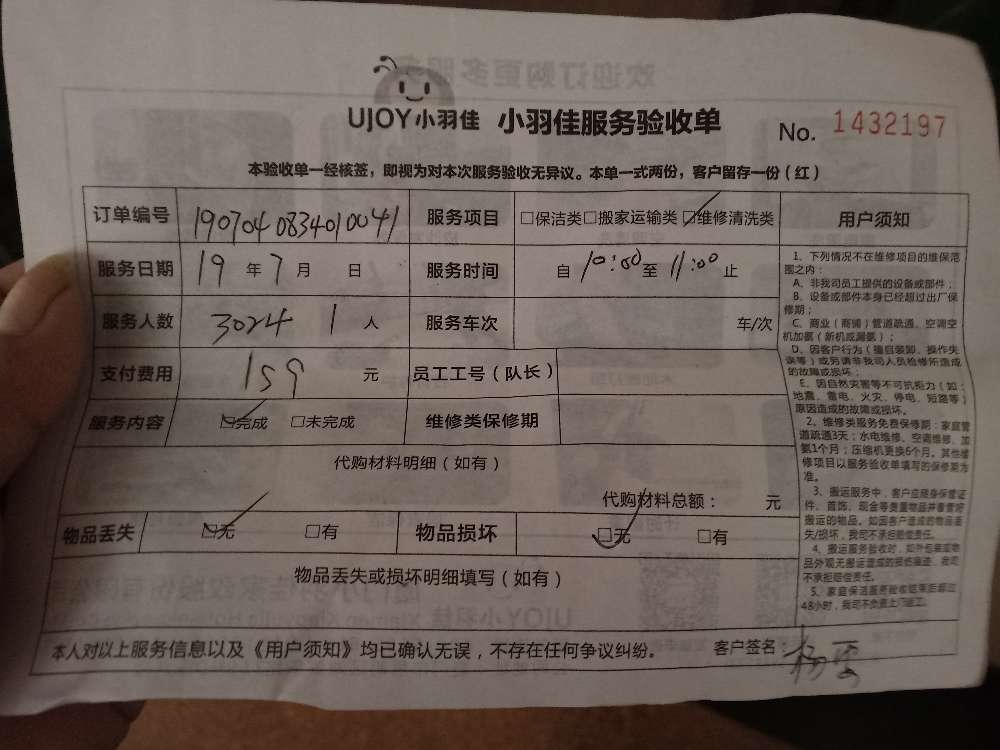 UJOY小羽佳 小羽佳服务验收单 No. 1432197
本验收单一经核签，即视为对本次服务验收无异议。本单一式两份，客户留存一份（红）
订单编号 190704083401 0041 服务项目 □保洁类□搬家运输类☑维修清洗类 用户须知
服务日期 19 年 7 月 日 服务时间 自 10:00 至 11:00 止
服务人数 3024 1 人 服务车次 车/次
支付费用 159 元 员工工号（队长）
服务内容 ☑完成 □未完成 维修类保修期
代购材料明细（如有）
代购材料总额： 元
物品丢失 ☑无 □有 物品损坏 ☑无 □有
物品丢失或损坏明细填写（如有）
本人对以上服务信息以及《用户须知》均已确认无误，不存在任何争议纠纷。 客户签名：杨
1、下列情况不在维修项目的维保范
围之内：
A、非我司员工提供的设备或部件；
B、设备或部件本身已经超过出厂保
修期；
C、商业（商铺）管道疏通、空调空
机加氨（新机或漏氨）；
D、因客户行为（擅自装卸、操作失
误等）或另请非我司人员检修所造成
的故障或损坏；
E、因自然灾害等不可抗拒力（如：
地震、雷电、火灾、停电、短路等）
原因造成的故障或损坏。
2、维修类服务免费保修期：家庭管
道疏通3天；水电维修、空调维修、加
氨1个月；压缩机更换6个月。其他维
修项目以服务验收单填写的保修期为
准。
3、搬运服务中，客户应随身保管证
件、首饰、现金等贵重物品并看管好
搬运的物品。如因客户造成的物品丢
失/损坏，我司不承担赔偿责任。
4、搬运服务验收时，如外包装或物
品外观无搬运造成的损伤痕迹，我司
不承担赔偿责任。
5、家庭保洁服务验收结束后超过
48小时，我司不负责上门返工。